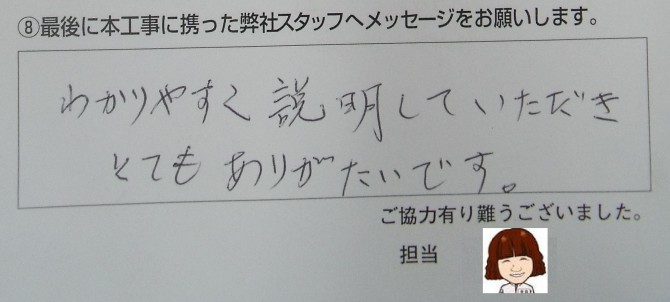 ⑧最後に本工事に携った弊社スタッフへメッセージをお願いします。
わかりやすく説明していただき
とてもありがたいです。
ご協力有り難うございました。
担当